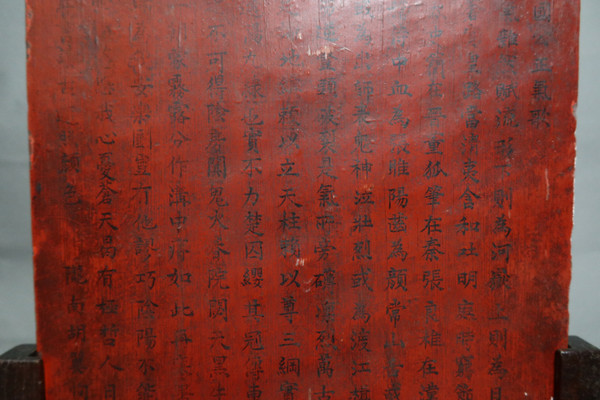 正氣歌
賦流形下則為河嶽上則為日
皇路當清夷含和吐明庭時窮節
史簡在晉董狐筆在秦張良椎在漢
中血為張睢陽齒為顏常山舌或
出師表鬼神泣壯烈或為渡江楫
豎頭破裂是氣所旁礡凜烈萬古
地維賴以立天柱賴以尊三綱實
九隸也實不力楚囚纓其冠傳車
不可得陰房闃鬼火春院閟天黑牛
蒙霧露分作溝中瘠如此再寒
安樂國豈有他繆巧陰陽不能
我心憂蒼天曷有極哲人日
道照顏色 南胡